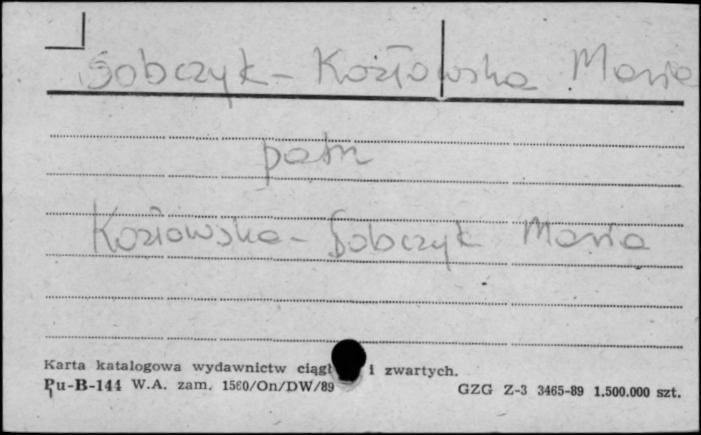 Sobczyk - Kozłowska Maria
patrz
Kozłowska - Sobczyk Maria
Karta katalogowa wydawnictw ciągł i zwartych.
Pu-B-144 W.A. zam. 1560/On/DW/89
GZG Z-3 3465-89 1.500.000 szt.